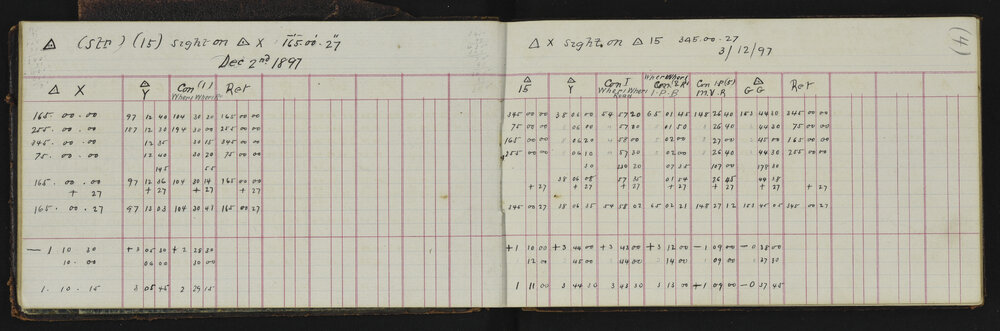 △ (Str) (15) sight on △ X 165°. 00'. 27"
Dec 2nd 1897
△ X △ Y Con (1) Ret
165 . 00 . 00 97 12 40 104 30 20 165 00 00
255 . 00 . 00 187 12 30 194 30 00 255 00 00
345 . 00 . 00 12 35 30 15 345 00 00
75 . 00 . 00 12 40 30 20 75 00 00
145 55
165 . 00 . 00 97 12 36 104 30 14 165 00 00
+ 27 + 27 + 27 + 27
165 . 00 . 27 97 13 03 104 30 41 165 00 27
— 1 10 30 + 3 05 30 + 2 28 30
10 . 00 06 00 30 00
1 . 10 . 15 3 05 45 2 29 15
(4)
△ X sight on △ 15 345 . 00 . 27
3/12/97
△ 15 △ Y Con I Con (2) R I.P.B Con I.P (5) M.V.R △ G G Ret
345 00 00 38 06 00 54 57 20 65 01 45 148 26 40 153 44 30 345 00 00
75 00 00 06 00 57 20 01 50 26 40 44 30 75 00 00
165 00 00 06 20 58 00 02 00 27 00 45 00 165 00 00
255 00 00 06 10 57 30 02 00 26 40 44 30 255 00 00
30 230 20 07 35 107 00 178 30
38 06 08 57 35 01 54 26 45
+ 27 + 27 + 27 + 27 + 27 + 27 + 27
345 00 27 38 06 35 54 58 02 65 02 21 148 27 12 153 45 05 345 00 27
+ 1 10 00 + 3 44 00 + 3 43 00 + 3 12 00 — 1 09 00 — 0 38 00
12 00 45 00 44 00 14 00 09 00 37 30
1 11 00 3 44 30 3 43 30 3 13 00 + 1 09 00 — 0 37 45